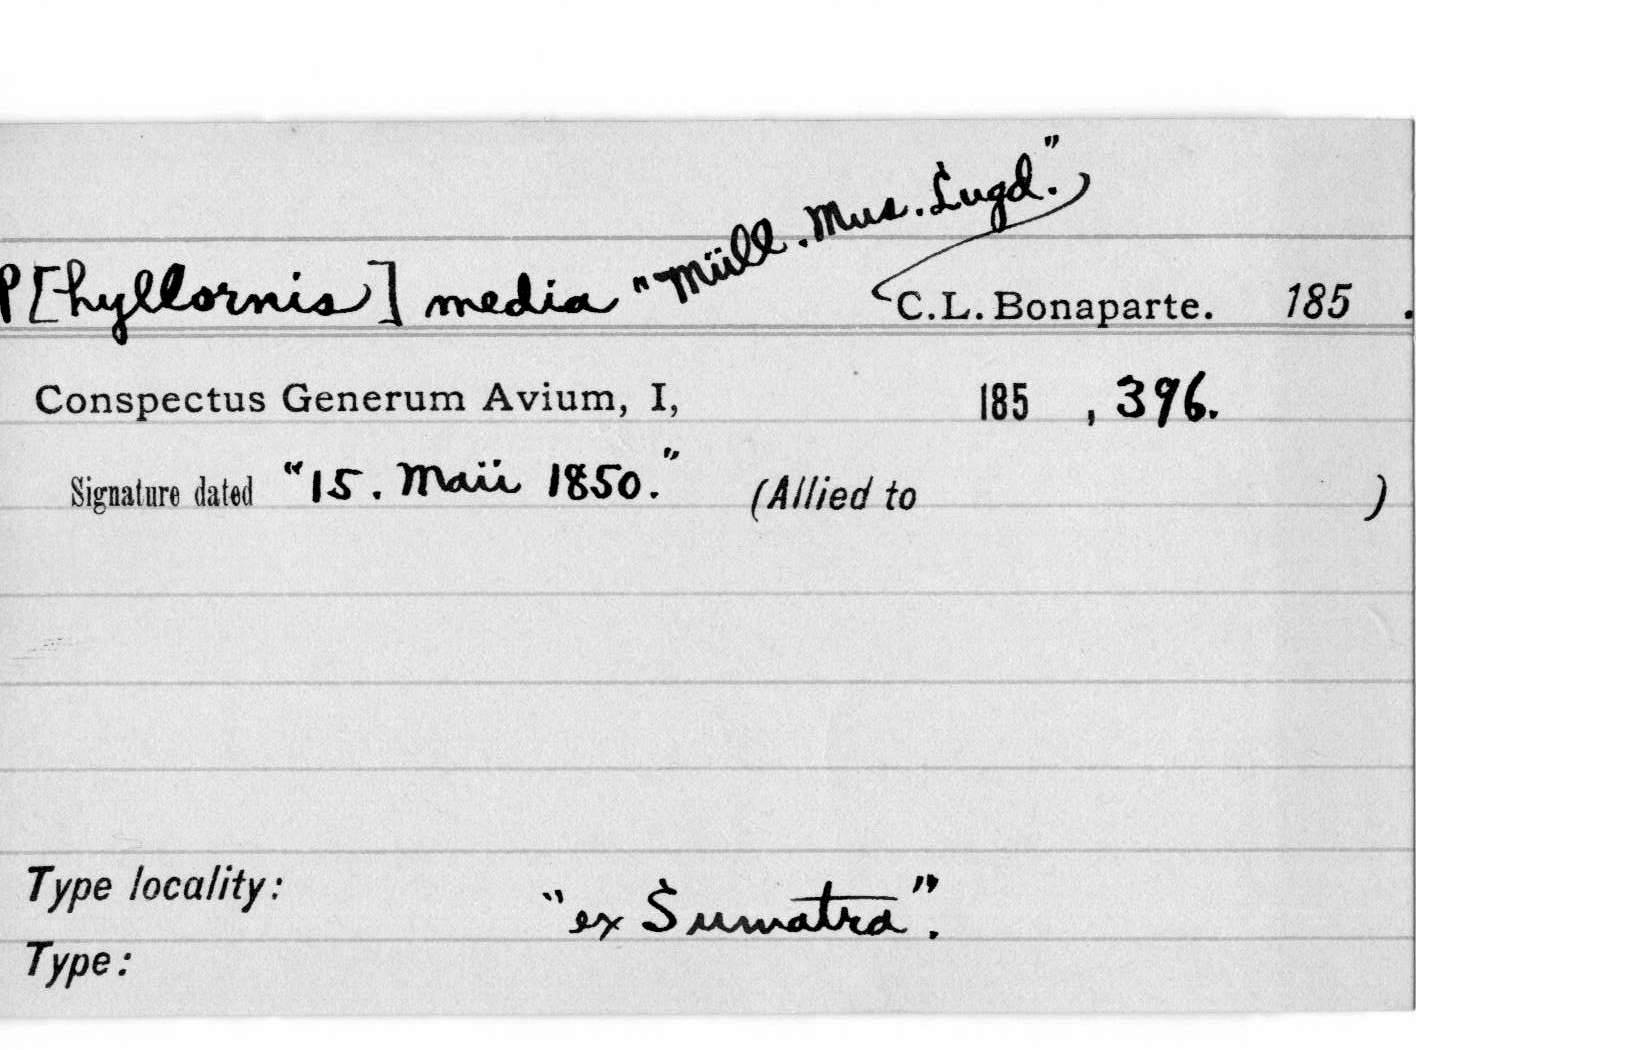 P[hyllornis] media "Müll. Mus. Lugd."
C.L. Bonaparte. 185 .
Conspectus Generum Avium, I, 185 , 396.
Signature dated "15. Maii 1850." (Allied to )
Type locality: "ex Sumatra".
Type: